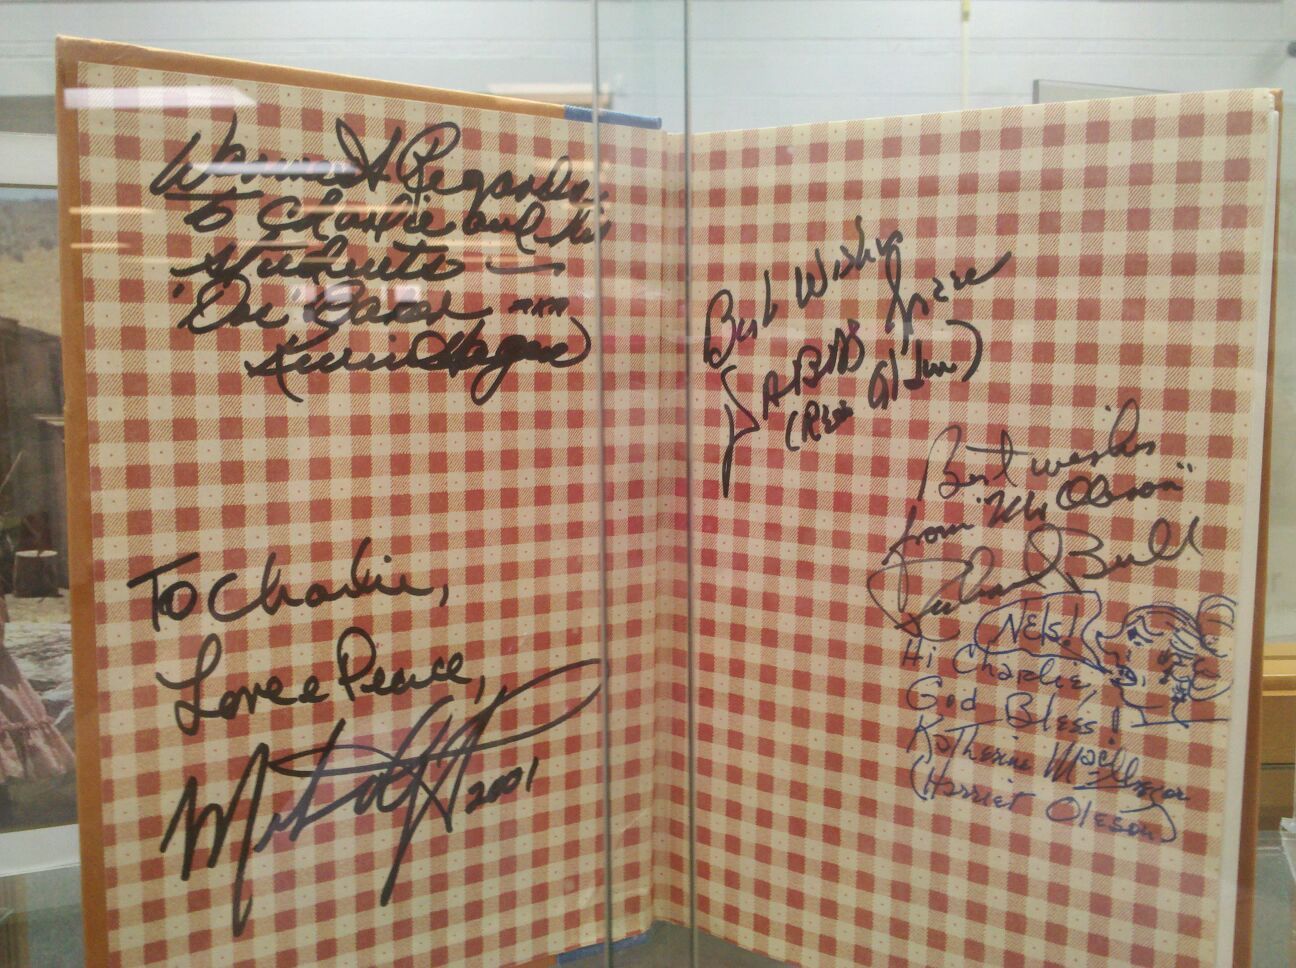 Warmest Regards
to Charlie and his
students —
"Doc" Baker
Kevin Hagen
To Charlie,
Love & Peace,
2001
Best Wishes
(Rev Alden)
Best wishes
from "Mr Oleson"
Richard Bull
Nels!
Hi Charlie,
God Bless!
Katherine MacGregor
(Harriet Oleson)